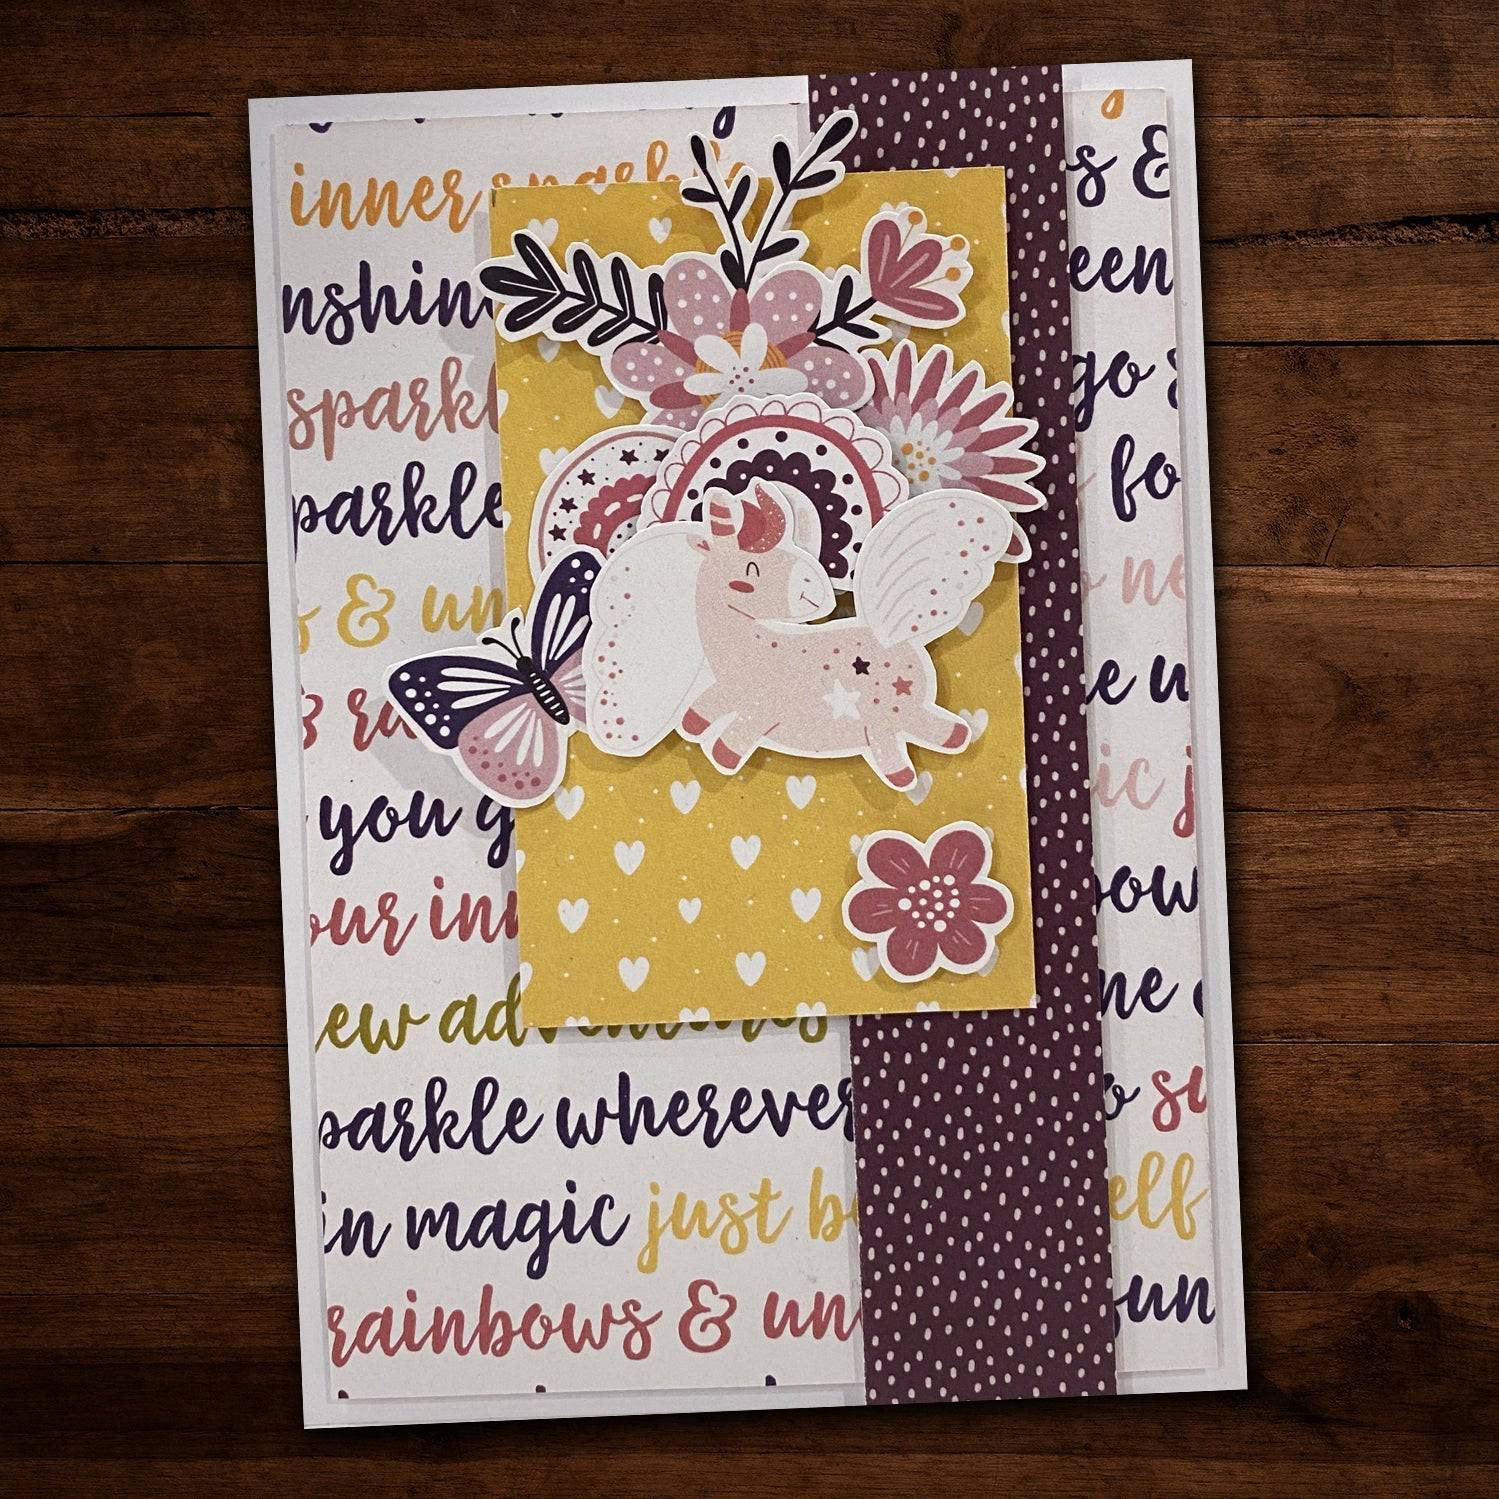 inner sparkle
s &
nshin
een
sparkl
go
parkle
fo
& un
ne
& ra
e u
you g
ic j
our inn
bow
ew adventures
ne
parkle wherever
o su
in magic just be
elf
rainbows & un
un